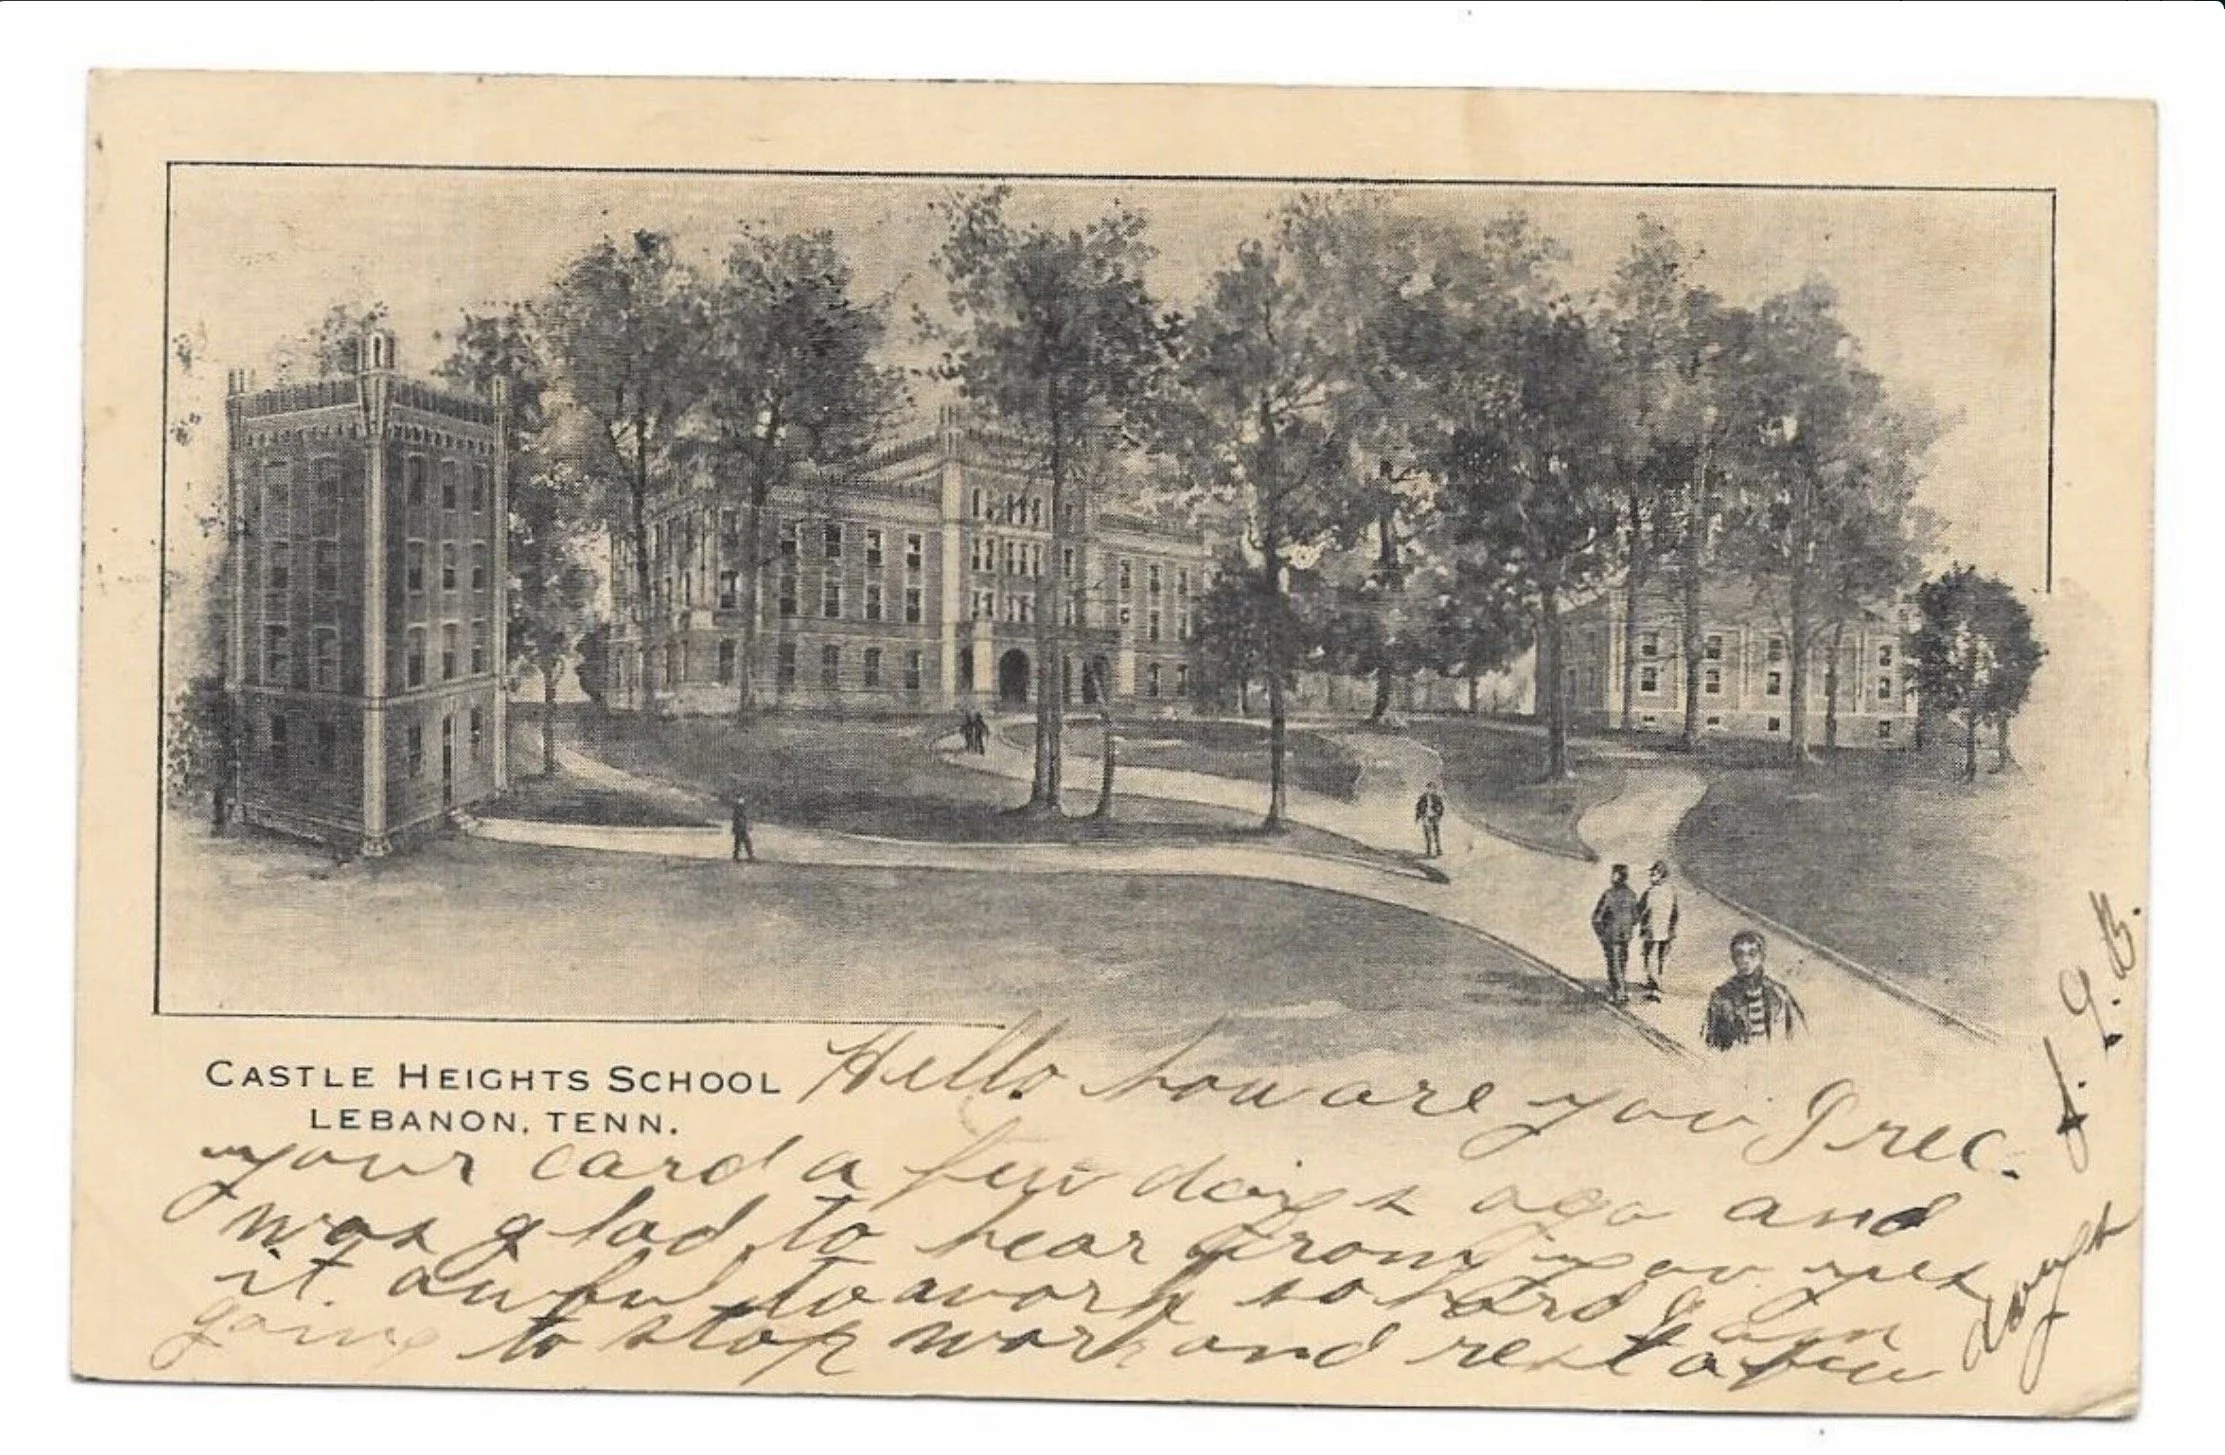 CASTLE HEIGHTS SCHOOL
LEBANON, TENN.
Hello how are you I rec.
your card a few days ago and
was glad to hear from you yes
it awful to work so hard I am
going to stop work and rest a few
days
J. G. B.